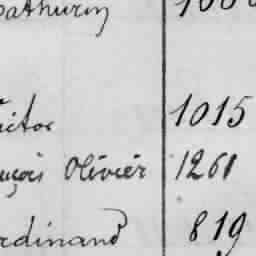 athurin 100
ictor 1015
nçois Olivier 1261
rdinand 819